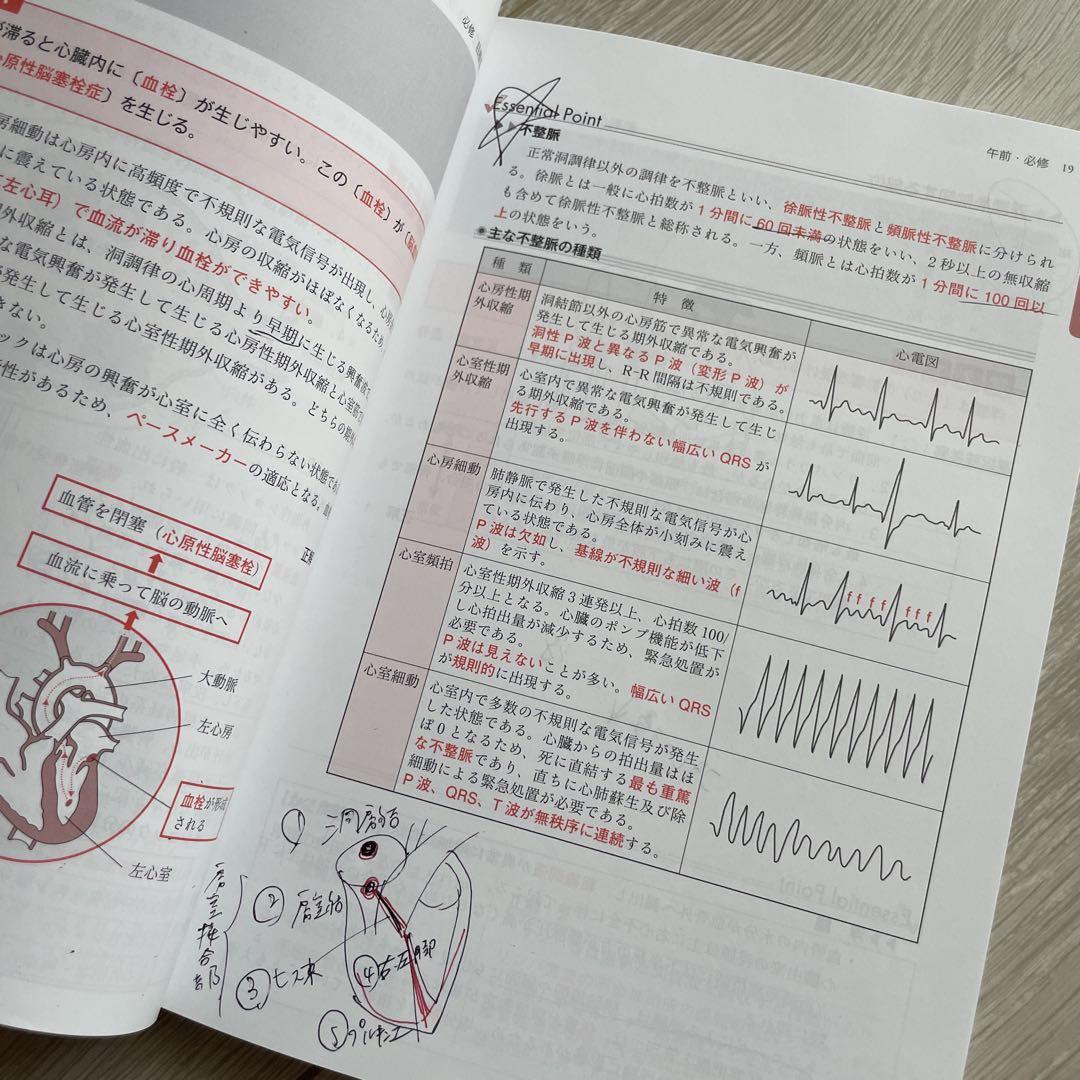 が滞ると心臓内に〔血栓〕が生じやすい。この〔血栓〕が〔
原性脳塞栓症〕を生じる。
房細動は心房内に高頻度で不規則な電気信号が出現し、心房
に震えている状態である。心房の収縮がほぼなくなるため
左心耳）で血流が滞り血栓ができやすい。
期外収縮とは、洞調律の心周期より早期に生じる興奮
な電気興奮が発生して生じる心房性期外収縮と心室筋
が発生して生じる心室性期外収縮がある。どちらの期
きない。
ックは心房の興奮が心室に全く伝わらない状態で
性があるため、ペースメーカーの適応となる。
正解
血管を閉塞（心原性脳塞栓）
血流に乗って脳の動脈へ
大動脈
左心房
血栓が形成
される
左心室
必修
午前・必修 19
Essential Point
不整脈
正常洞調律以外の調律を不整脈といい、徐脈性不整脈と頻脈性不整脈に分けられ
る。徐脈とは一般に心拍数が1分間に60回未満の状態をいい、2秒以上の無収縮
も含めて徐脈性不整脈と総称される。一方、頻脈とは心拍数が1分間に100回以
上の状態をいう。
◉主な不整脈の種類
種類 特徴 心電図
心房性期
外収縮
洞結節以外の心房筋で異常な電気興奮が
発生して生じる期外収縮である。
洞性P波と異なるP波（変形P波）が
早期に出現し、R-R間隔は不規則である。
心室性期
外収縮
心室内で異常な電気興奮が発生して生じ
る期外収縮である。
先行するP波を伴わない幅広いQRSが
出現する。
心房細動
肺静脈で発生した不規則な電気信号が心
房内に伝わり、心房全体が小刻みに震え
ている状態である。
P波は欠如し、基線が不規則な細い波（f
波）を示す。
f f f f f f f
心室頻拍
心室性期外収縮3連発以上、心拍数100/
分以上となる。心臓のポンプ機能が低下
し心拍出量が減少するため、緊急処置が
必要である。
P波は見えないことが多い。幅広いQRS
が規則的に出現する。
心室細動
心室内で多数の不規則な電気信号が発生
した状態である。心臓からの拍出量はほ
ぼ0となるため、死に直結する最も重篤
な不整脈であり、直ちに心肺蘇生及び除
細動による緊急処置が必要である。
P波、QRS、T波が無秩序に連続する。
①
②房室結
③ヒス束
④右左脚
⑤プルキンエ
房室接合部